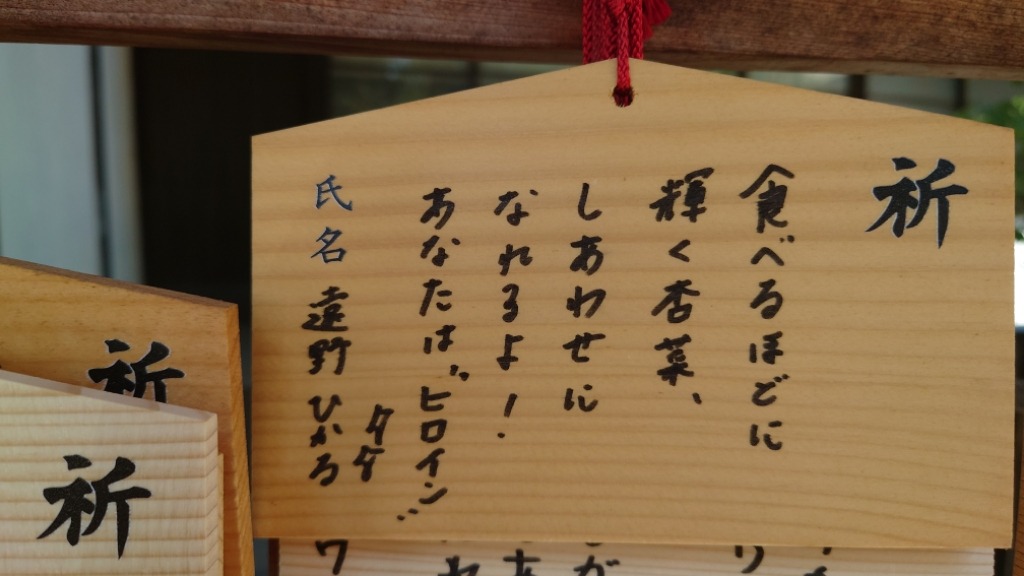 祈
食べるほどに
輝く杏菜、
しあわせに
なれるよ！
あなたは〝ヒロイン〟
タダ
氏名 遠野 ひかる
祈
祈